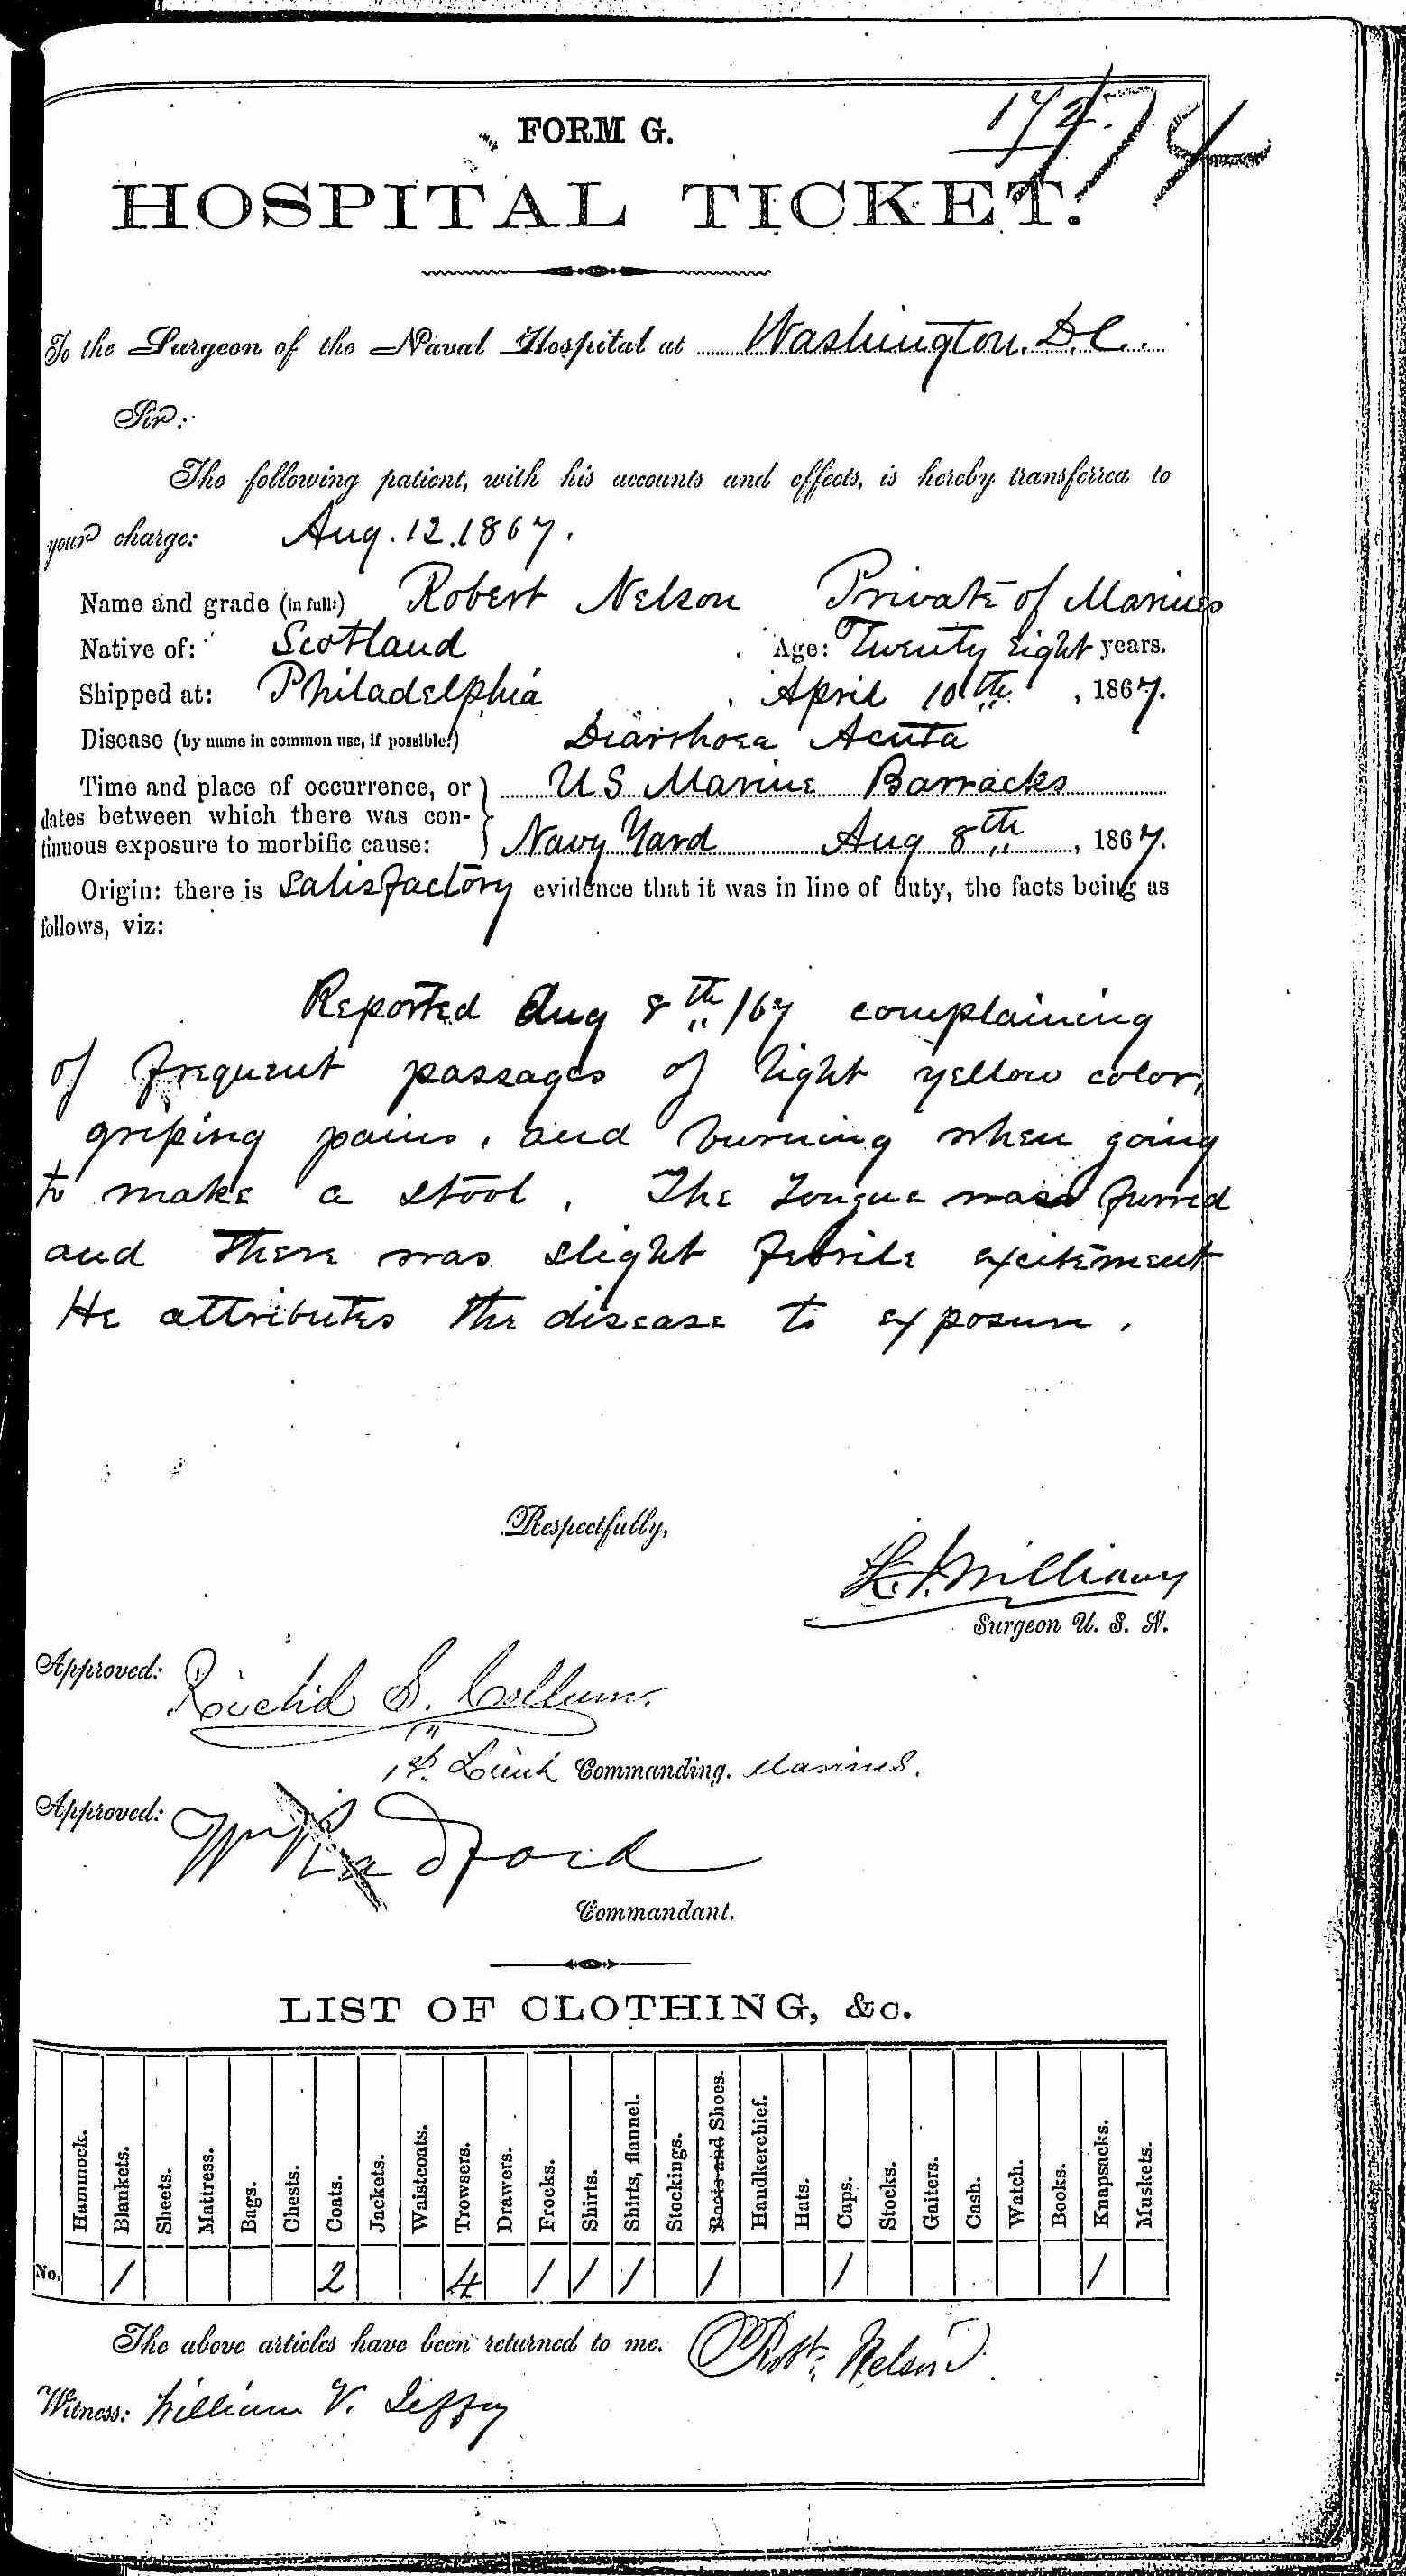 174
FORM G.
HOSPITAL TICKET.
To the Surgeon of the Naval Hospital at Washington, D.C.
Sir:
The following patient, with his accounts and effects, is hereby transferred to
your charge: Aug. 12. 1867.
Name and grade (in full:) Robert Nelson Private of Marines
Native of: Scotland Age: Twenty Eight years.
Shipped at: Philadelphia April 10th, 1867.
Disease (by name in common use, if possible:) Diarrhoea Acuta
Time and place of occurrence, or } U.S. Marine Barracks
dates between which there was con-
tinuous exposure to morbific cause: } Navy Yard Aug 8th, 1867.
Origin: there is Satisfactory evidence that it was in line of duty, the facts being as
follows, viz:
Reported Aug 8th /67 complaining
of frequent passages of light yellow color,
griping pains, and burning when going
to make a stool. The tongue was furred
and there was slight febrile excitement
He attributes the disease to exposure.
Respectfully,
Williams
Surgeon U. S. N.
Approved: Richd S. Collum
1st Lieut Commanding. Marines.
Approved: Wm Radford
Commandant.
LIST OF CLOTHING, &c.
Hammock. Blankets. Sheets. Mattress. Bags. Chests. Coats. Jackets. Waistcoats. Trowsers. Drawers. Frocks. Shirts. Shirts, flannel. Stockings. Boots and Shoes. Handkerchief. Hats. Caps. Stocks. Gaiters. Cash. Watch. Books. Knapsacks. Muskets.
No. 1 2 4 1 1 1 1 1 1
The above articles have been returned to me. Robt. Nelson
Witness: William V.